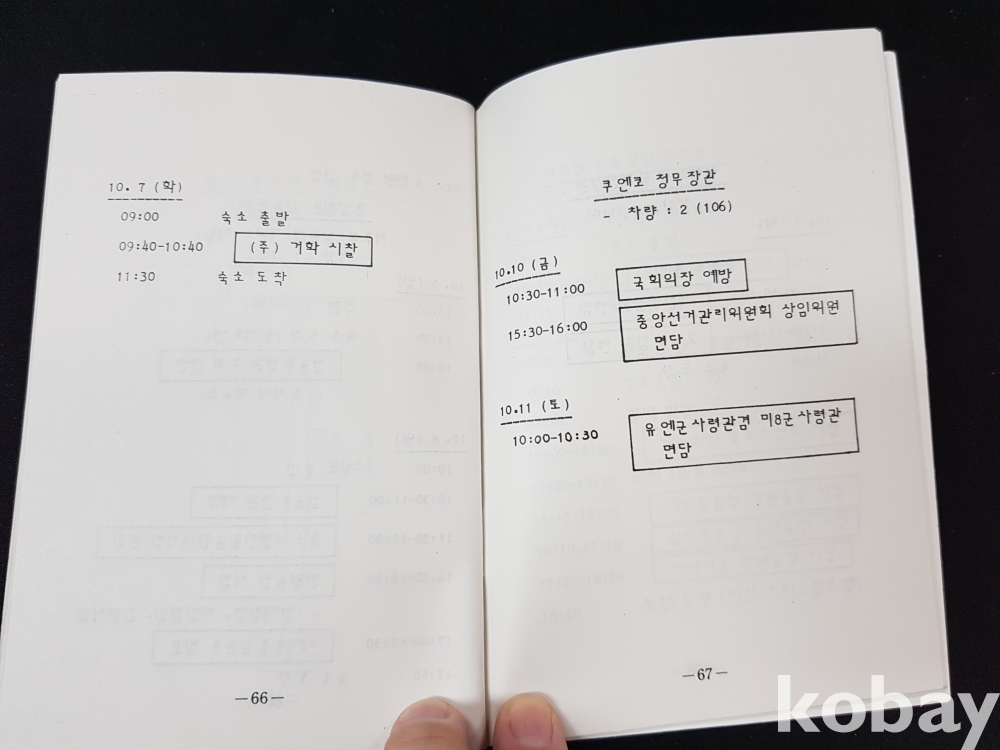 10. 7 (화)
09:00 숙소 출발
09:40-10:40 (주) 거화 시찰
11:30 숙소 도착
—66—
쿠엔코 정무장관
- 차량 : 2 (106)
10.10 (금)
10:30-11:00 국회의장 예방
15:30-16:00 중앙선거관리위원회 상임위원
면담
10.11 (토)
10:00-10:30 유엔군사령관겸 미8군사령관
면담
—67—
kobay